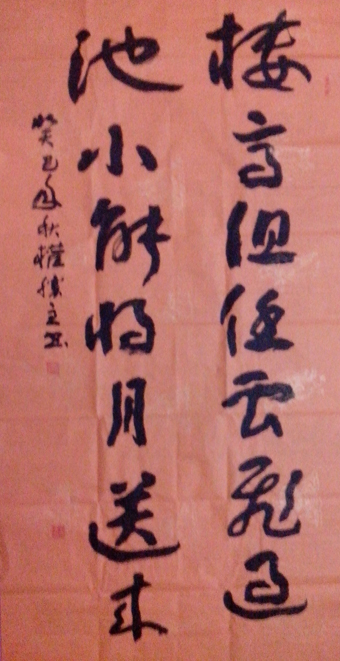 楼高但任云飛过
池小能将月送来
癸巳年秋權勝主书